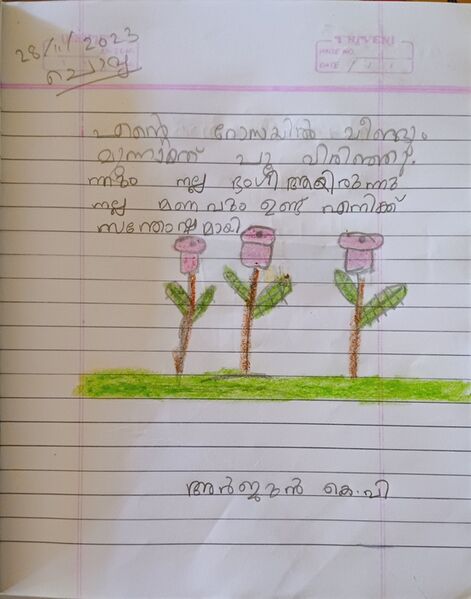 TRIVENI
PAGE NO.
DATE / /
28/11/2023
ചൊവ്വ
എന്റെ റോസയിൽ വീണ്ടും
മൂന്നാമത് പൂ വിരിഞ്ഞു.
നല്ല ഭംഗി ആയിരുന്നു
നല്ല മണവും ഉണ്ട് എനിക്ക്
സന്തോഷമായി
അർജുൻ കെ.പി